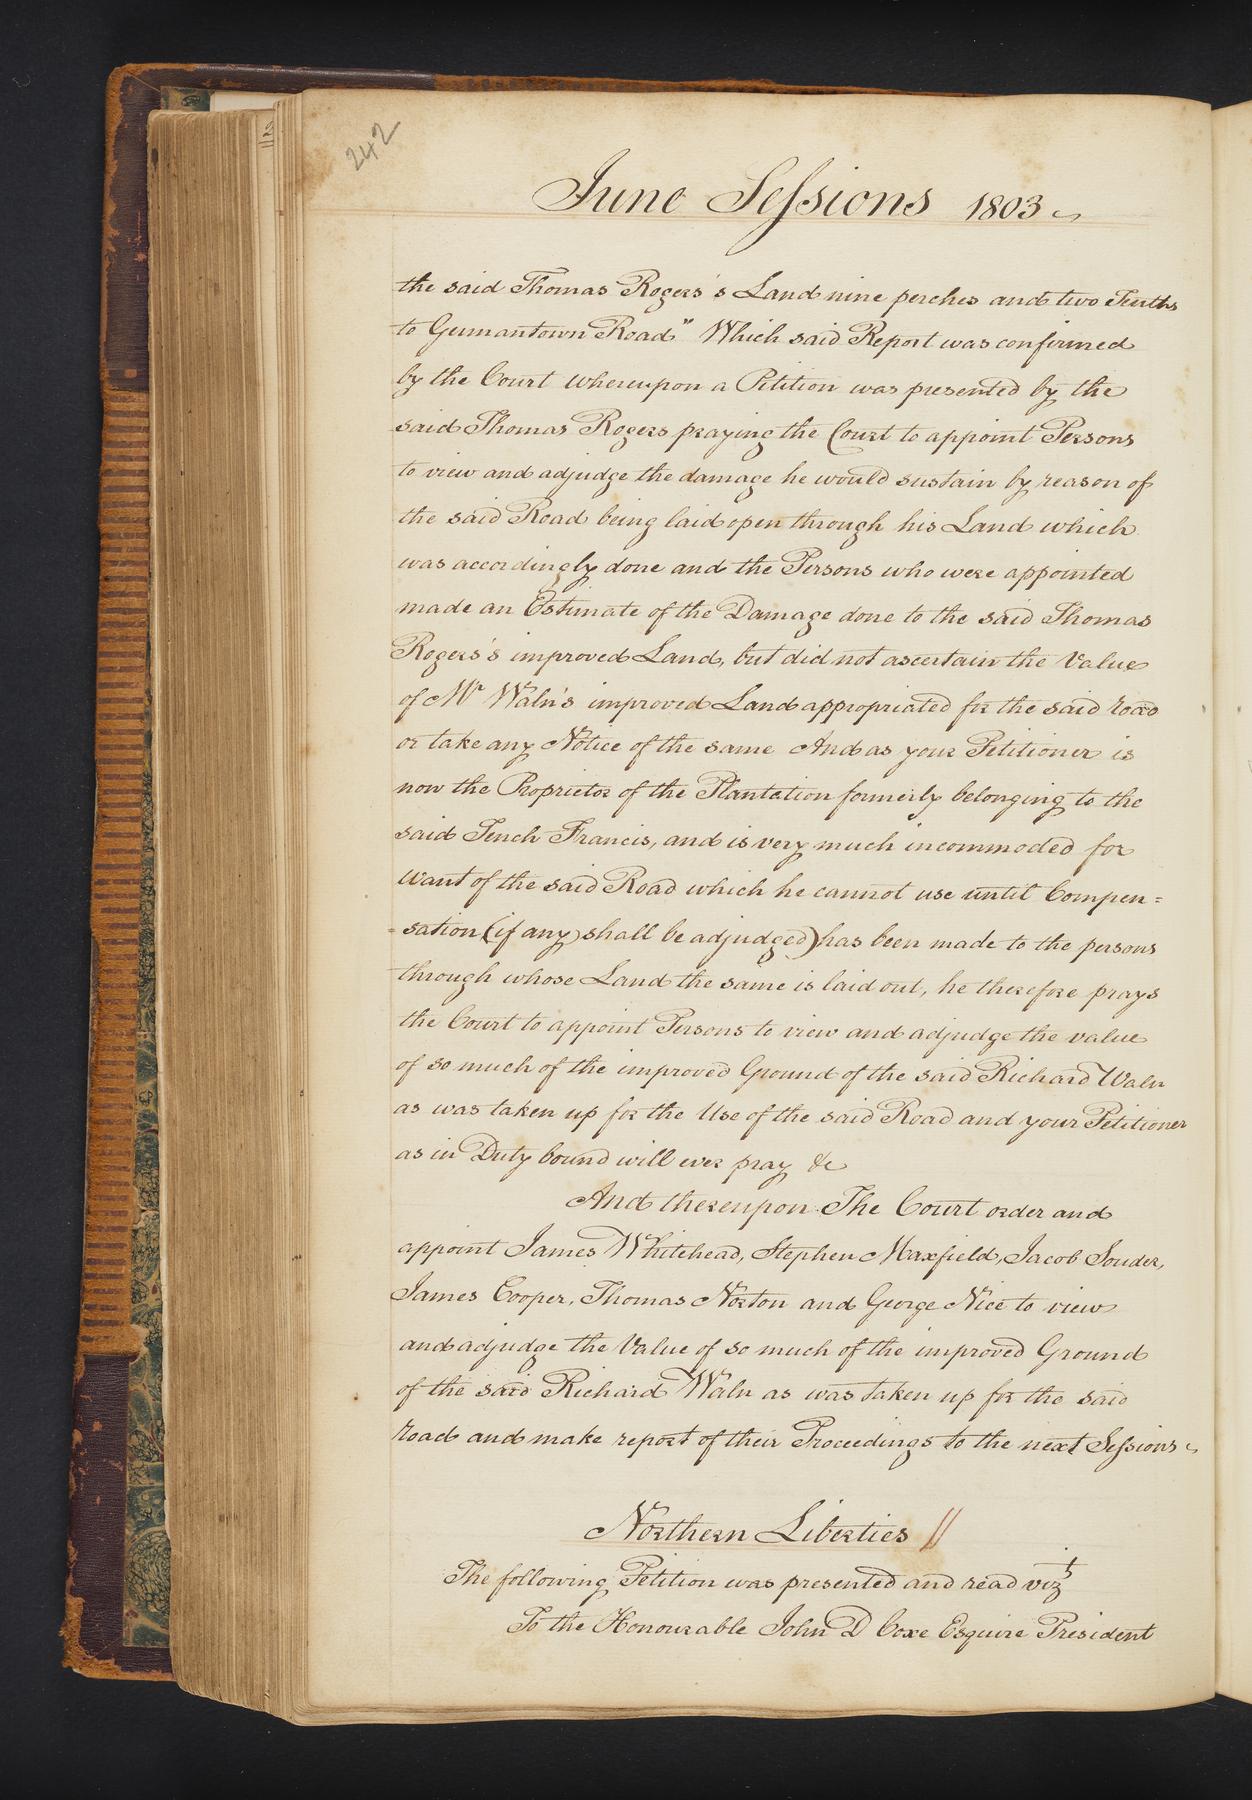 242
June Sessions 1803
the said Thomas Rogers's Land nine perches and two Tenths
to Germantown Road" Which said Report was confirmed
by the Court whereupon a Petition was presented by the
said Thomas Rogers praying the Court to appoint Persons
to view and adjudge the damage he would sustain by reason of
the said Road being laid open through his Land which
was accordingly done and the Persons who were appointed
made an Estimate of the Damage done to the said Thomas
Rogers's improved Land, but did not ascertain the Value
of Mr Waln's improved Land appropriated for the said road
or take any Notice of the same And as your Petitioner is
now the Proprietor of the Plantation formerly belonging to the
said Tench Francis, and is very much incommoded for
Want of the said Road which he cannot use until Compen=
=sation (if any) shall be adjudged) has been made to the persons
through whose Land the same is laid out, he therefore prays
the Court to appoint Persons to view and adjudge the value
of so much of the improved Ground of the said Richard Waln
as was taken up for the Use of the said Road and your Petitioner
as in Duty bound will ever pray &c
And thereupon The Court order and
appoint James Whitehead, Stephen Maxfield, Jacob Souder,
James Cooper, Thomas Norton and George Nice to view
and adjudge the Value of so much of the improved Ground
of the said Richard Waln as was taken up for the said
road and make report of their Proceedings to the next Sessions
Northern Liberties //
The following Petition was presented and read vizt
To the Honourable John D Coxe Esquire President